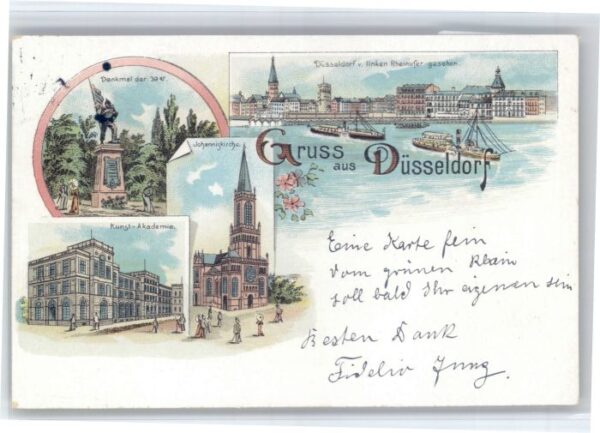 Denkmal der 39er
Düsseldorf v. linken Rheinufer gesehen.
Johanniskirche.
Gruss aus Düsseldorf
Kunst-Akademie.
Eine Karte fein
vom grünen Rhein
soll bald Ihr eigenen sein
Besten Dank
Fidelio Jung.